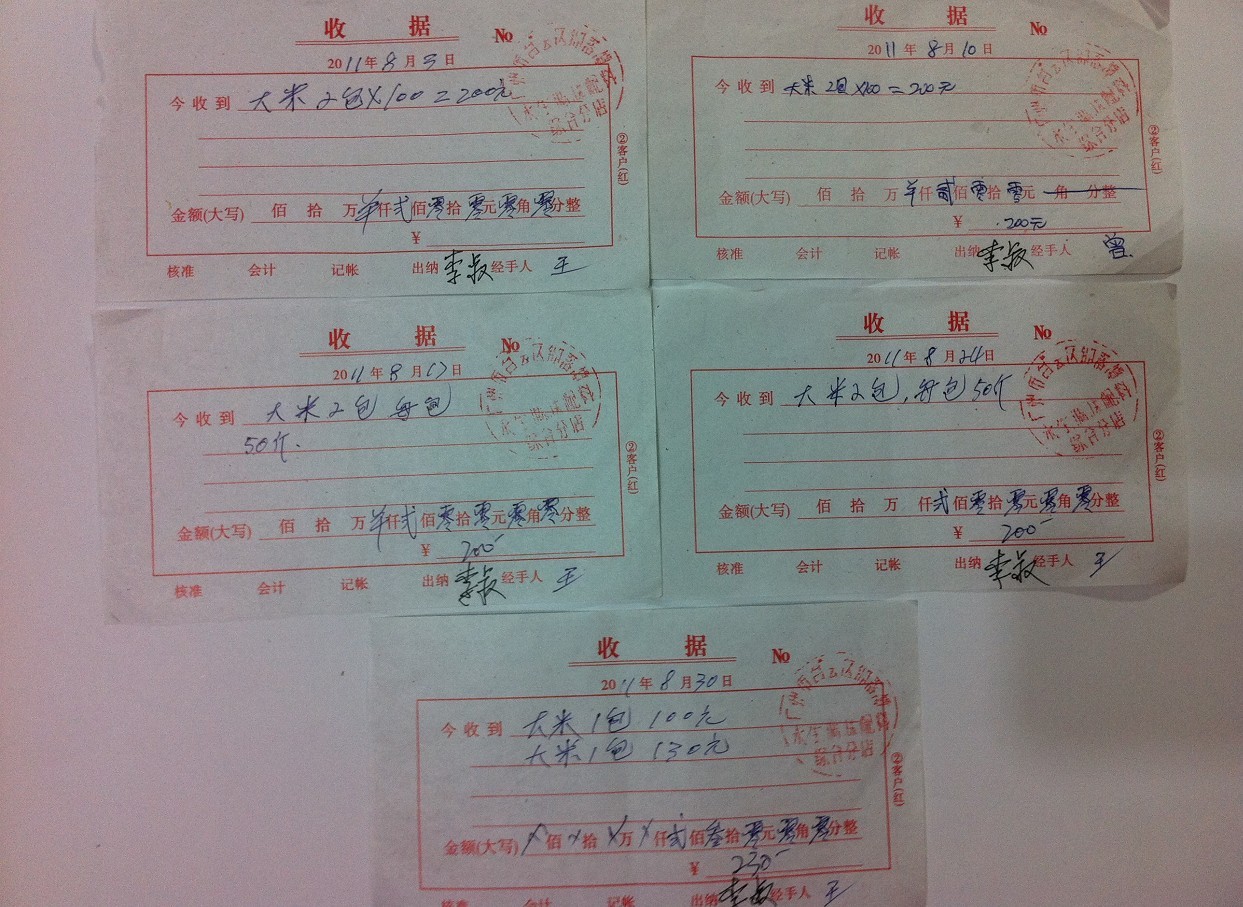 收据
No
2011年8月3日
今收到 大米2包×100=200元
②客户(红)
金额(大写) 佰 拾 万 羊仟 弍佰 零拾 零元 零角 零分整
¥
核准 会计 记帐 出纳 李 经手人 王
收据
No
2011年8月10日
今收到 大米2包×100=200元
②客户(红)
金额(大写) 佰 拾 万 羊仟 贰佰 零拾 零元 角 分整
¥ 200元
核准 会计 记帐 出纳 李 经手人 曾
收据
No
2011年8月17日
今收到 大米2包 每包
50斤.
②客户(红)
金额(大写) 佰 拾 万 羊仟 弍佰 零拾 零元 零角 零分整
¥ 200-
核准 会计 记帐 出纳 李 经手人 王
收据
No
2011年8月24日
今收到 大米2包,每包50斤
②客户(红)
金额(大写) 佰 拾 万 仟 弍佰 零拾 零元 零角 零分整
¥ 200-
核准 会计 记帐 出纳 李 经手人 王
收据
No
2011年8月30日
今收到 大米1包 100元
大米1包 130元
②客户(红)
金额(大写) ×佰 ×拾 ×万 ×仟 弍佰 叁拾 零元 零角 零分整
¥ 230-
核准 会计 记帐 出纳 李 经手人 王